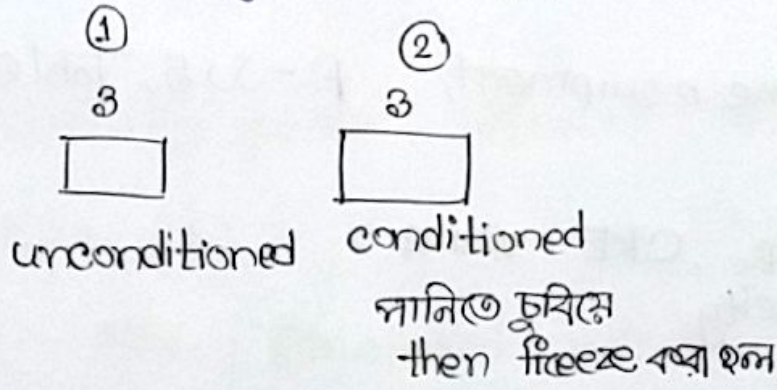 ① ②
3 3
unconditioned conditioned
পানিতে চুবিয়ে
then freeze করা হল